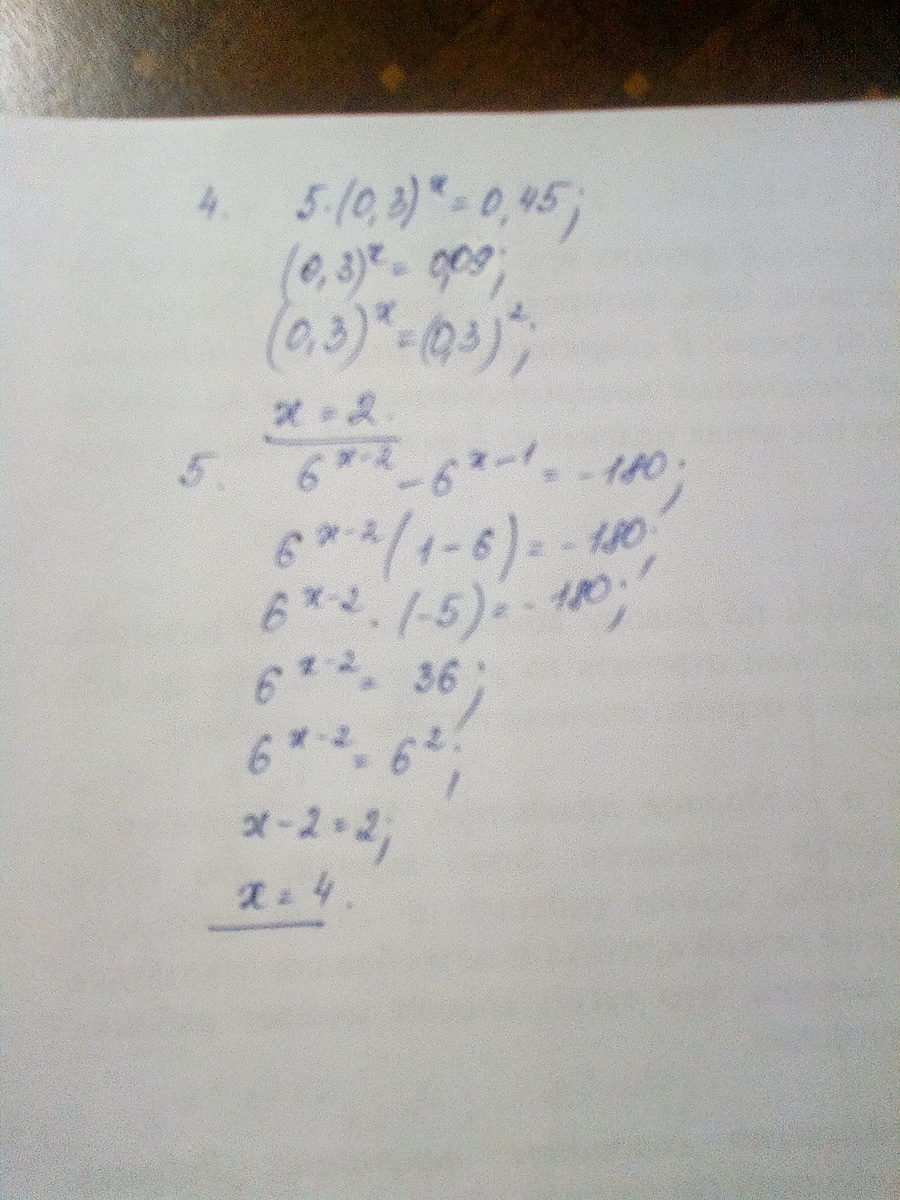 4. 5·(0,3)^x = 0,45;
(0,3)^x = 0,09;
(0,3)^x = (0,3)^2;
x = 2.
5. 6^{x-2} - 6^{x-1} = -180;
6^{x-2}(1-6) = -180;
6^{x-2} · (-5) = -180;
6^{x-2} = 36;
6^{x-2} = 6^2;
x - 2 = 2;
x = 4.